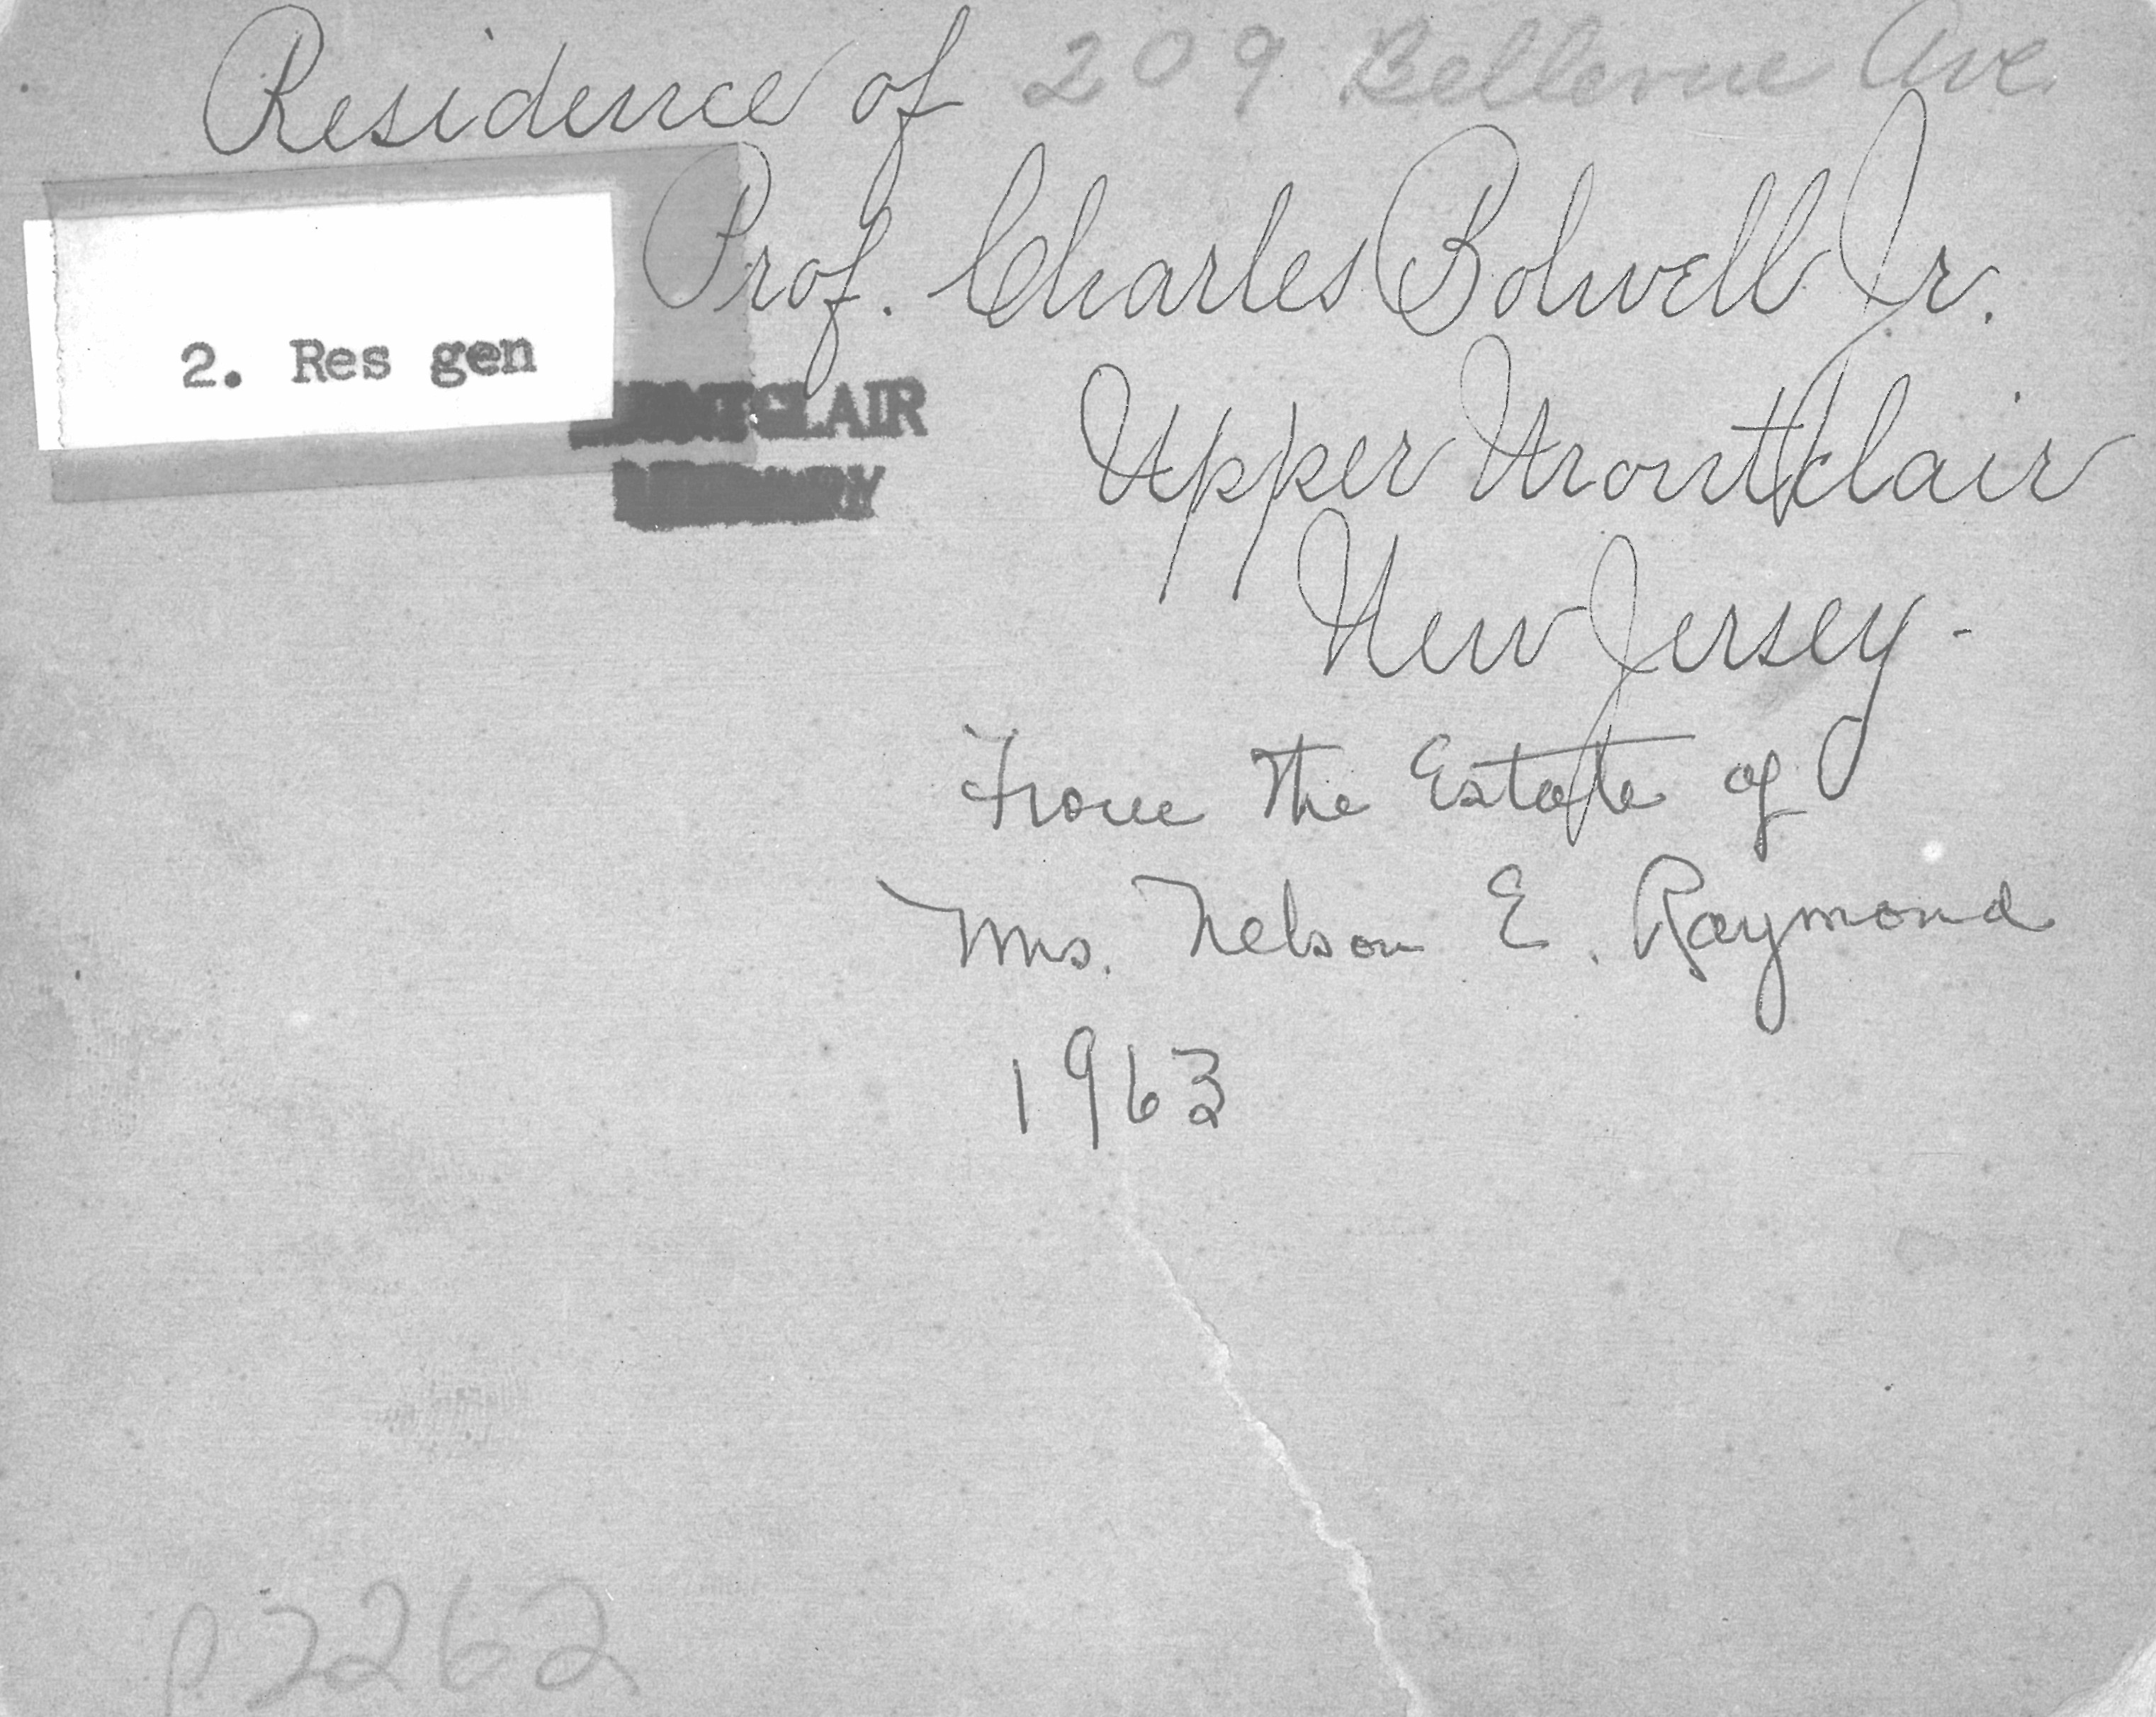 Residence of 209 Bellevue Ave.
Prof. Charles Bolwell Jr.
2. Res gen
MONTCLAIR
LIBRARY
Upper Montclair
New Jersey-
From the Estate of
Mrs. Nelson E. Raymond
1963
P7262